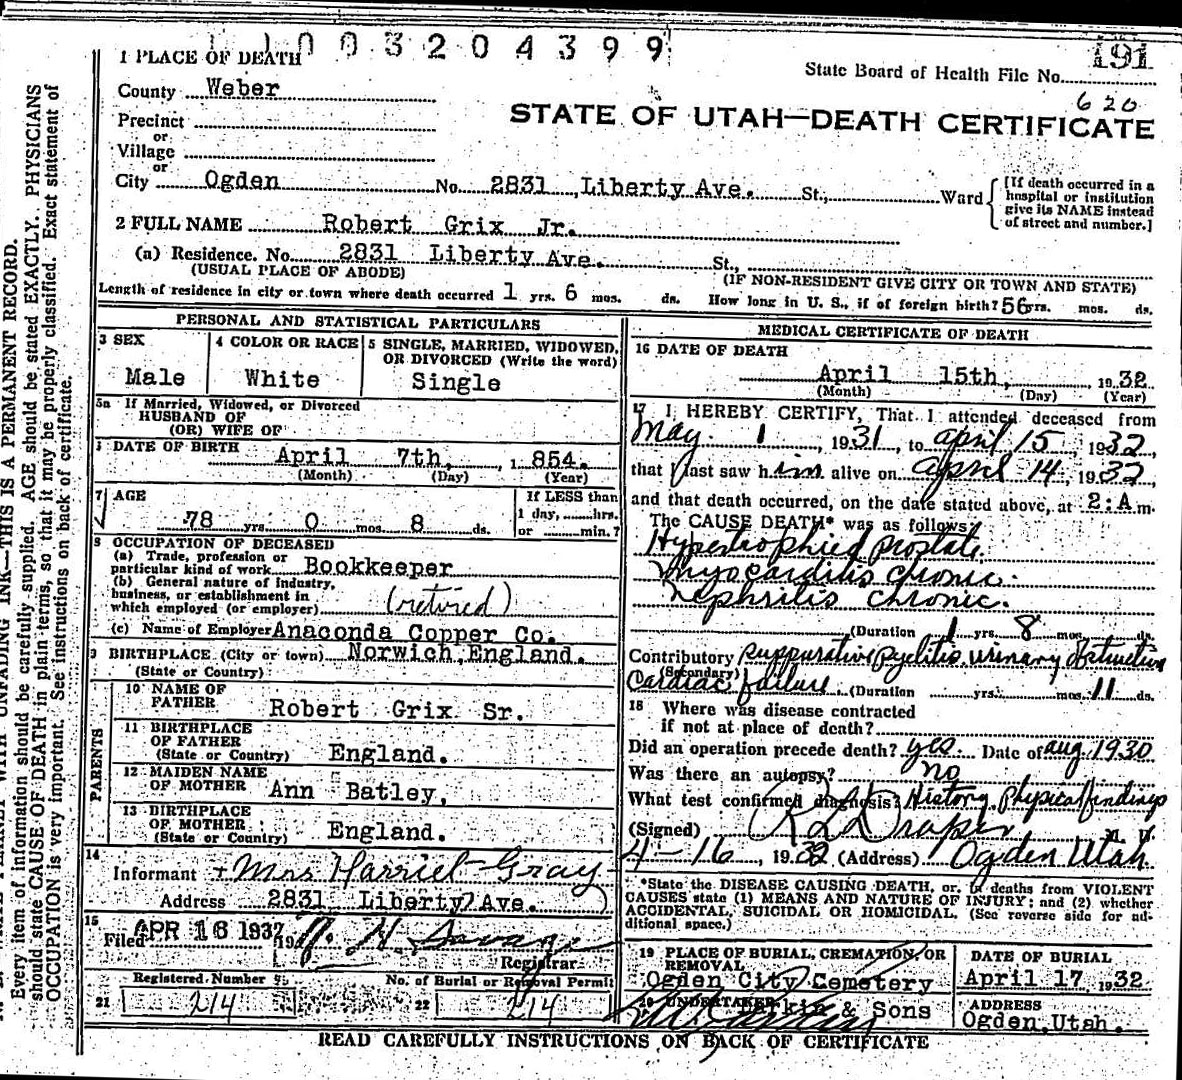 1003204399
191
1 PLACE OF DEATH
State Board of Health File No.
620
County Weber
STATE OF UTAH—DEATH CERTIFICATE
Precinct
or
Village
or
City Ogden No. 2831 Liberty Ave. St., Ward
[If death occurred in a
hospital or institution
give its NAME instead
of street and number.]
2 FULL NAME Robert Grix Jr.
(a) Residence. No. 2831 Liberty Ave. St.,
(USUAL PLACE OF ABODE) (IF NON-RESIDENT GIVE CITY OR TOWN AND STATE)
Length of residence in city or town where death occurred 1 yrs. 6 mos. ds. How long in U. S., if of foreign birth? 56 yrs. mos. ds.
PERSONAL AND STATISTICAL PARTICULARS
3 SEX
Male
4 COLOR OR RACE
White
5 SINGLE, MARRIED, WIDOWED,
OR DIVORCED (Write the word)
Single
5a If Married, Widowed, or Divorced
HUSBAND OF
(OR) WIFE OF
DATE OF BIRTH
April 7th, 1854.
(Month) (Day) (Year)
7 AGE
78 yrs. 0 mos. 8 ds.
If LESS than
1 day, hrs.
or min.?
8 OCCUPATION OF DECEASED
(a) Trade, profession or
particular kind of work Bookkeeper
(b) General nature of industry,
business, or establishment in
which employed (or employer) (retired)
(c) Name of Employer Anaconda Copper Co.
9 BIRTHPLACE (City or town) Norwich, England.
(State or Country)
PARENTS
10 NAME OF
FATHER Robert Grix Sr.
11 BIRTHPLACE
OF FATHER
(State or Country) England.
12 MAIDEN NAME
OF MOTHER Ann Batley,
13 BIRTHPLACE
OF MOTHER
(State or Country) England.
14
Informant Mrs Harriet Gray
Address 2831 Liberty Ave.
15
Filed APR 16 1932
Registrar
Registered Number
No. of Burial or Removal Permit
21 214
22 214
MEDICAL CERTIFICATE OF DEATH
16 DATE OF DEATH
April 15th, 1932
(Month) (Day) (Year)
17 I HEREBY CERTIFY, That I attended deceased from
May 1, 1931, to April 15, 1932
that I last saw him alive on April 14, 1932,
and that death occurred, on the date stated above, at 2:A m.
The CAUSE DEATH* was as follows:
Hypertrophied prostate.
Myocarditis chronic.
Nephritis chronic.
(Duration 1 yrs. 8 mos. ds.
Contributory Suppurative pyelitis, urinary obstruction
(Secondary)
Cardiac failure. (Duration yrs. mos. 11 ds.
18 Where was disease contracted
if not at place of death?
Did an operation precede death? yes. Date of Aug 1930
Was there an autopsy? no
What test confirmed diagnosis? History, physical findings
(Signed) Draper M. D.
4-16, 1932 (Address) Ogden Utah.
*State the DISEASE CAUSING DEATH, or, in deaths from VIOLENT
CAUSES state (1) MEANS AND NATURE OF INJURY; and (2) whether
ACCIDENTAL, SUICIDAL OR HOMICIDAL. (See reverse side for additional space.)
19 PLACE OF BURIAL, CREMATION, OR
REMOVAL
Ogden City Cemetery
DATE OF BURIAL
April 17, 1932.
20 UNDERTAKER
Larkin & Sons
ADDRESS
Ogden, Utah.
READ CAREFULLY INSTRUCTIONS ON BACK OF CERTIFICATE
UNFADING INK—THIS IS A PERMANENT RECORD.
Every item of information should be carefully supplied. AGE should be stated EXACTLY. PHYSICIANS
should state CAUSE OF DEATH in plain terms, so that it may be properly classified. Exact statement of
OCCUPATION is very important. See instructions on back of certificate.